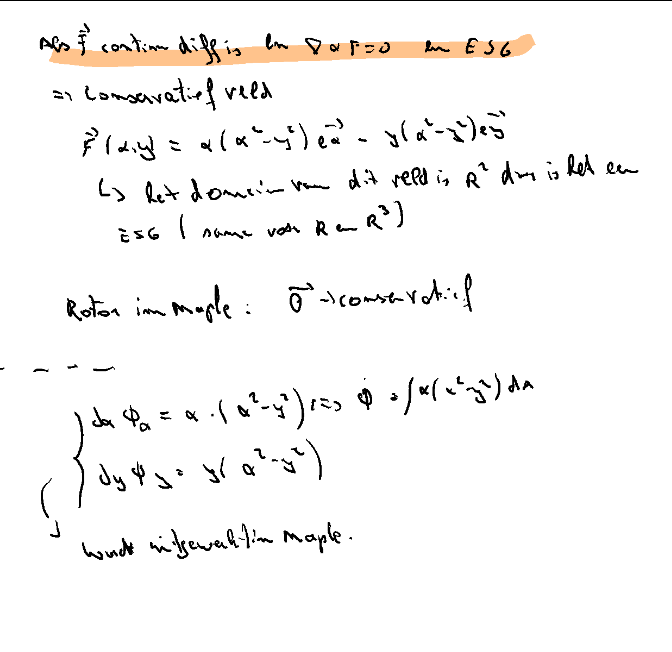 Als F⃗ continu diff is en ∇ x F = 0 en ESG
=> conservatief veld
F⃗(x,y) = x(x²-y²) e⃗x - y(x²-y²) e⃗y
↳ het domein van dit veld is R² dus is het een
ESG (same voor R en R³)
Rotor in maple: 0⃗ → conservatief
dx Φx = x·(x²-y²) => Φ = ∫x(x²-y²) dx
dy Φy = y(x²-y²)
wordt uitgewerkt in maple.